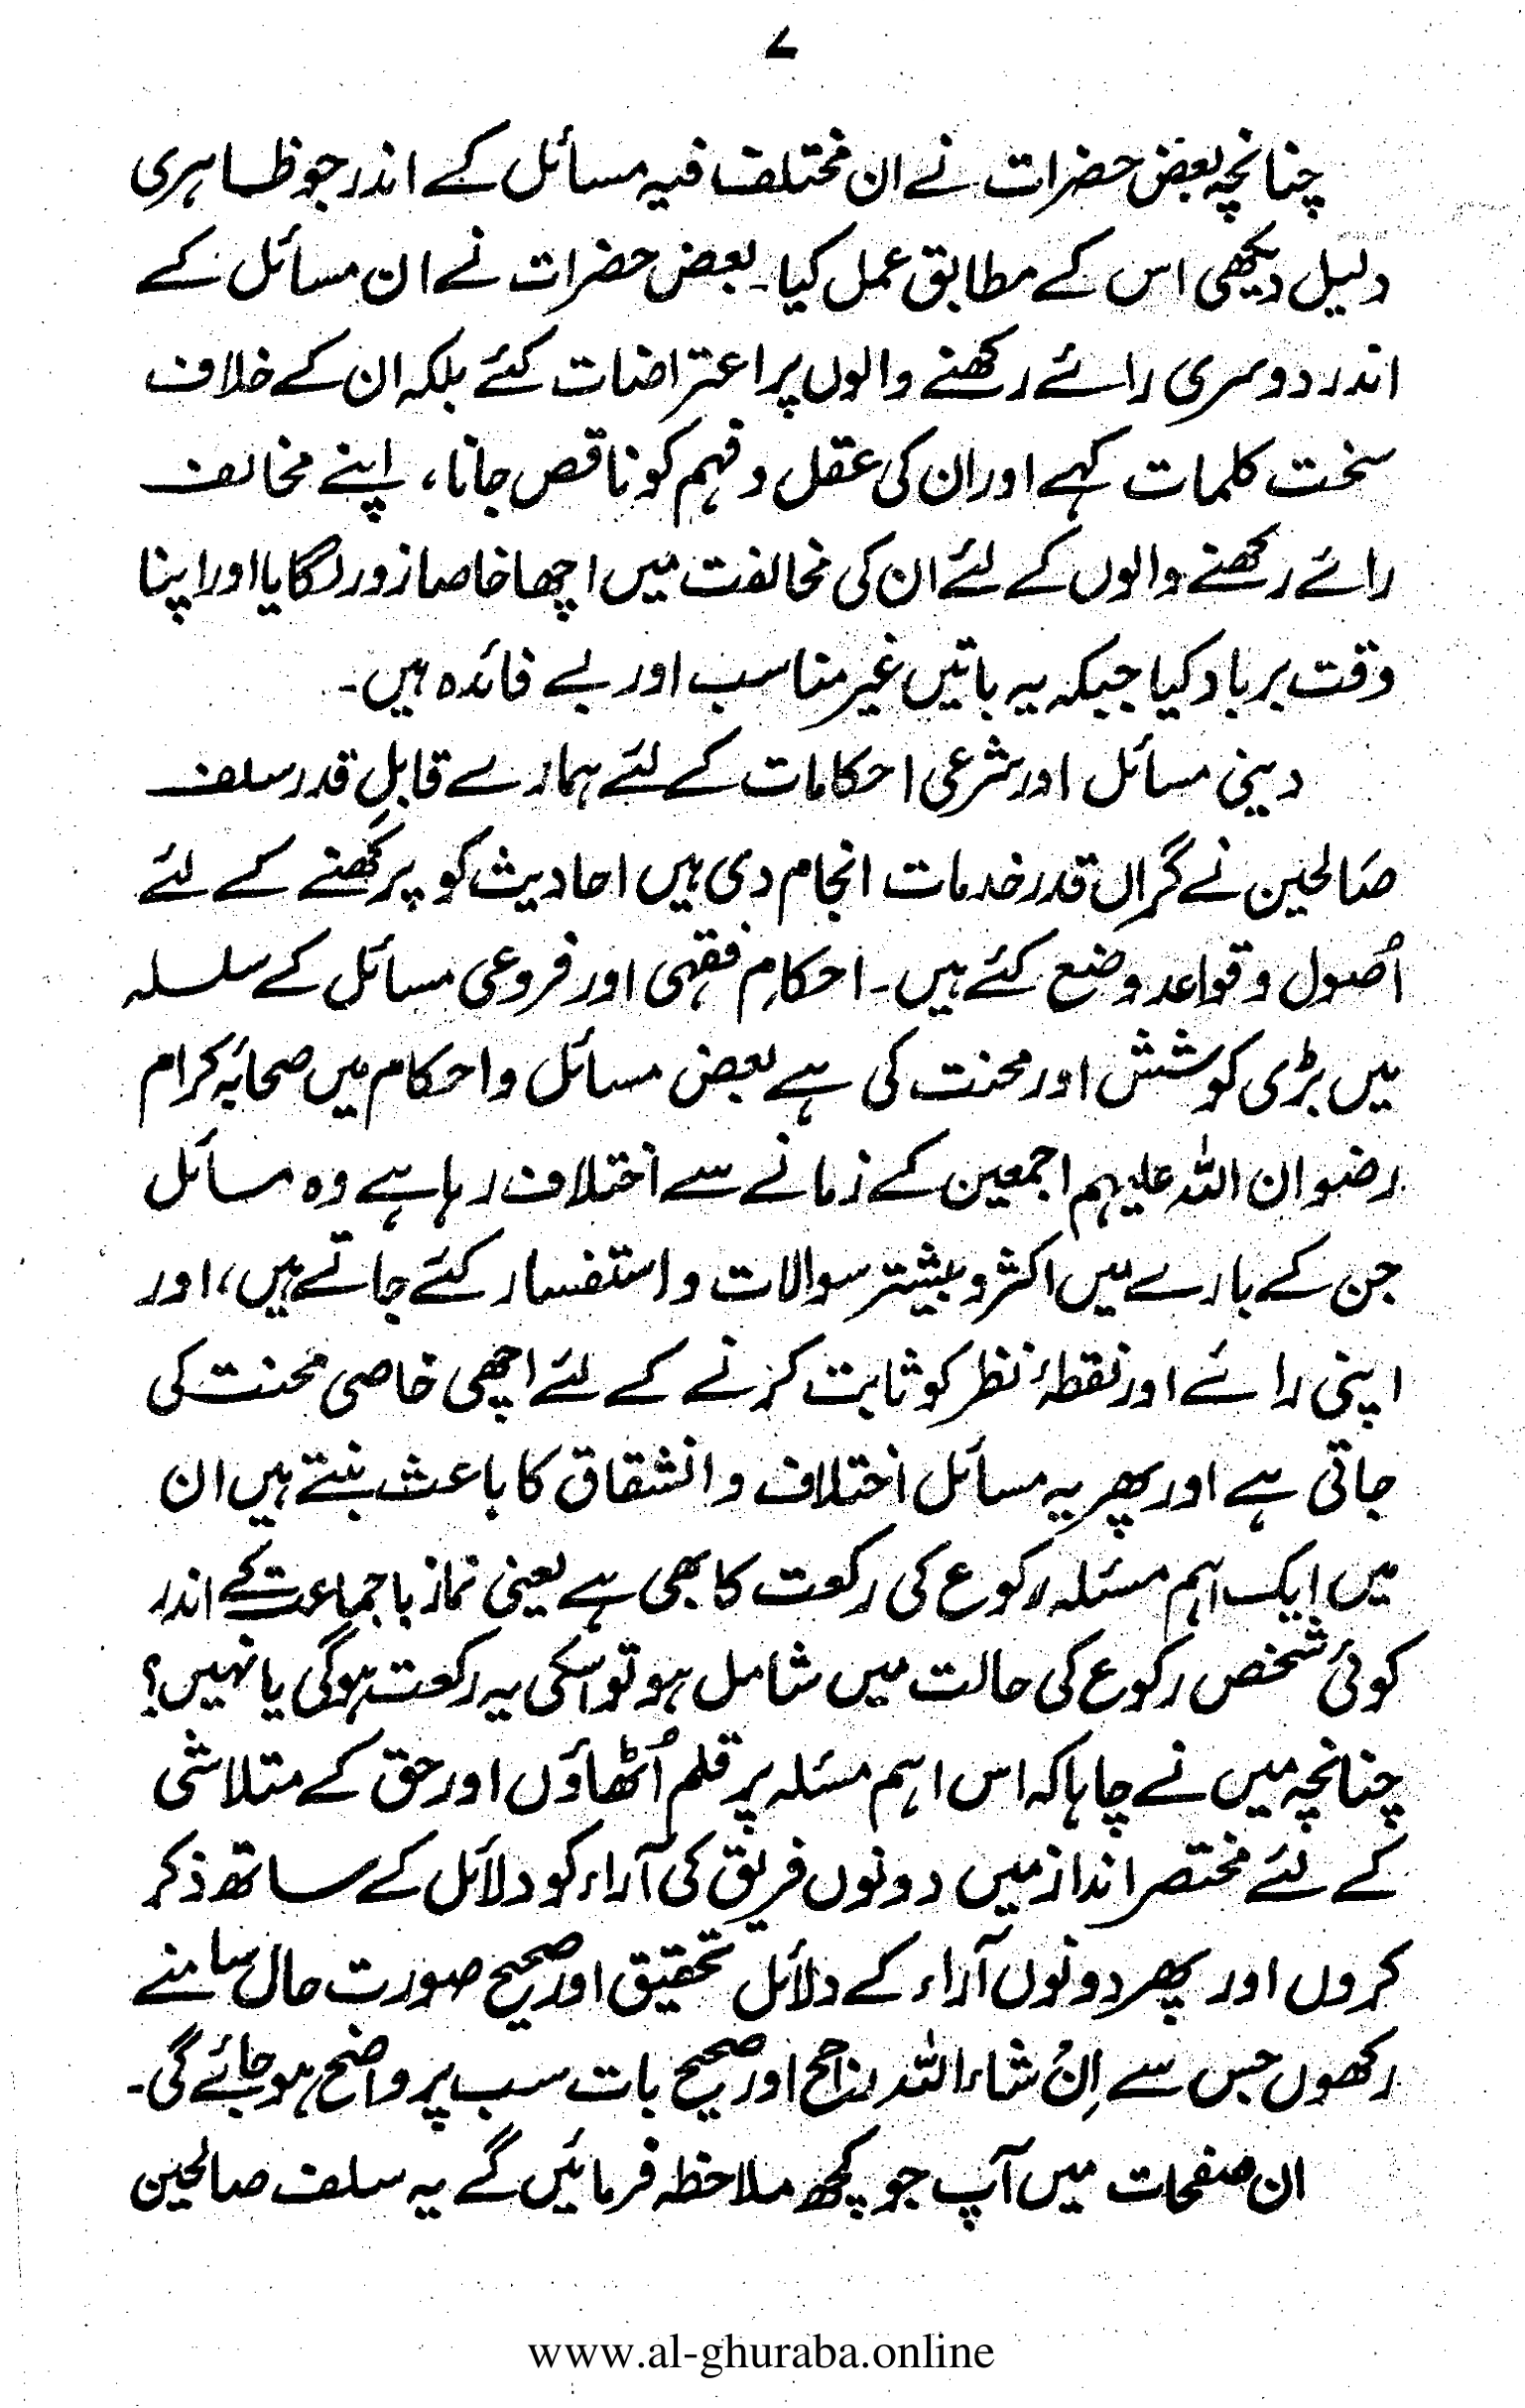 ۷
چنانچہ بعض حضرات نے ان مختلف فیہ مسائل کے اندر جو ظاہری
دلیل دیکھی اس کے مطابق عمل کیا۔ بعض حضرات نے ان مسائل کے
اندر دوسری رائے رکھنے والوں پر اعتراضات کئے بلکہ ان کے خلاف
سخت کلمات کہے اور ان کی عقل و فہم کو ناقص جانا، اپنے مخالف
رائے رکھنے والوں کے لئے ان کی مخالفت میں اچھا خاصا زور لگایا اور اپنا
وقت برباد کیا جبکہ یہ باتیں غیر مناسب اور بے فائدہ ہیں۔
دینی مسائل اور شرعی احکامات کے لئے ہمارے قابلِ قدر سلف
صالحین نے گراں قدر خدمات انجام دی ہیں احادیث کو پرکھنے کے لئے
اُصول و قواعد وضع کئے ہیں۔ احکامِ فقہی اور فروعی مسائل کے سلسلہ
میں بڑی کوشش اور محنت کی ہے بعض مسائل و احکام میں صحابہ کرام
رضوان اللہ علیہم اجمعین کے زمانے سے اختلاف رہا ہے وہ مسائل
جن کے بارے میں اکثر و بیشتر سوالات و استفسار کئے جاتے ہیں، اور
اپنی رائے اور نقطۂ نظر کو ثابت کرنے کے لئے اچھی خاصی محنت کی
جاتی ہے اور پھر یہ مسائل اختلاف و انشقاق کا باعث بنتے ہیں ان
میں ایک اہم مسئلہ رکوع کی رکعت کا بھی ہے یعنی نماز باجماعت کے اندر
کوئی شخص رکوع کی حالت میں شامل ہو تو اسکی یہ رکعت ہوگی یا نہیں؟
چنانچہ میں نے چاہا کہ اس اہم مسئلہ پر قلم اُٹھاؤں اور حق کے متلاشی
کے لئے مختصر انداز میں دونوں فریق کی آراء کو دلائل کے ساتھ ذکر
کروں اور پھر دونوں آراء کے دلائل تحقیق اور صحیح صورت حال سامنے
رکھوں جس سے اِنْ شاء اللہ راجح اور صحیح بات سب پر واضح ہو جائے گی۔
ان صفحات میں آپ جو کچھ ملاحظہ فرمائیں گے یہ سلف صالحین
www.al-ghuraba.online